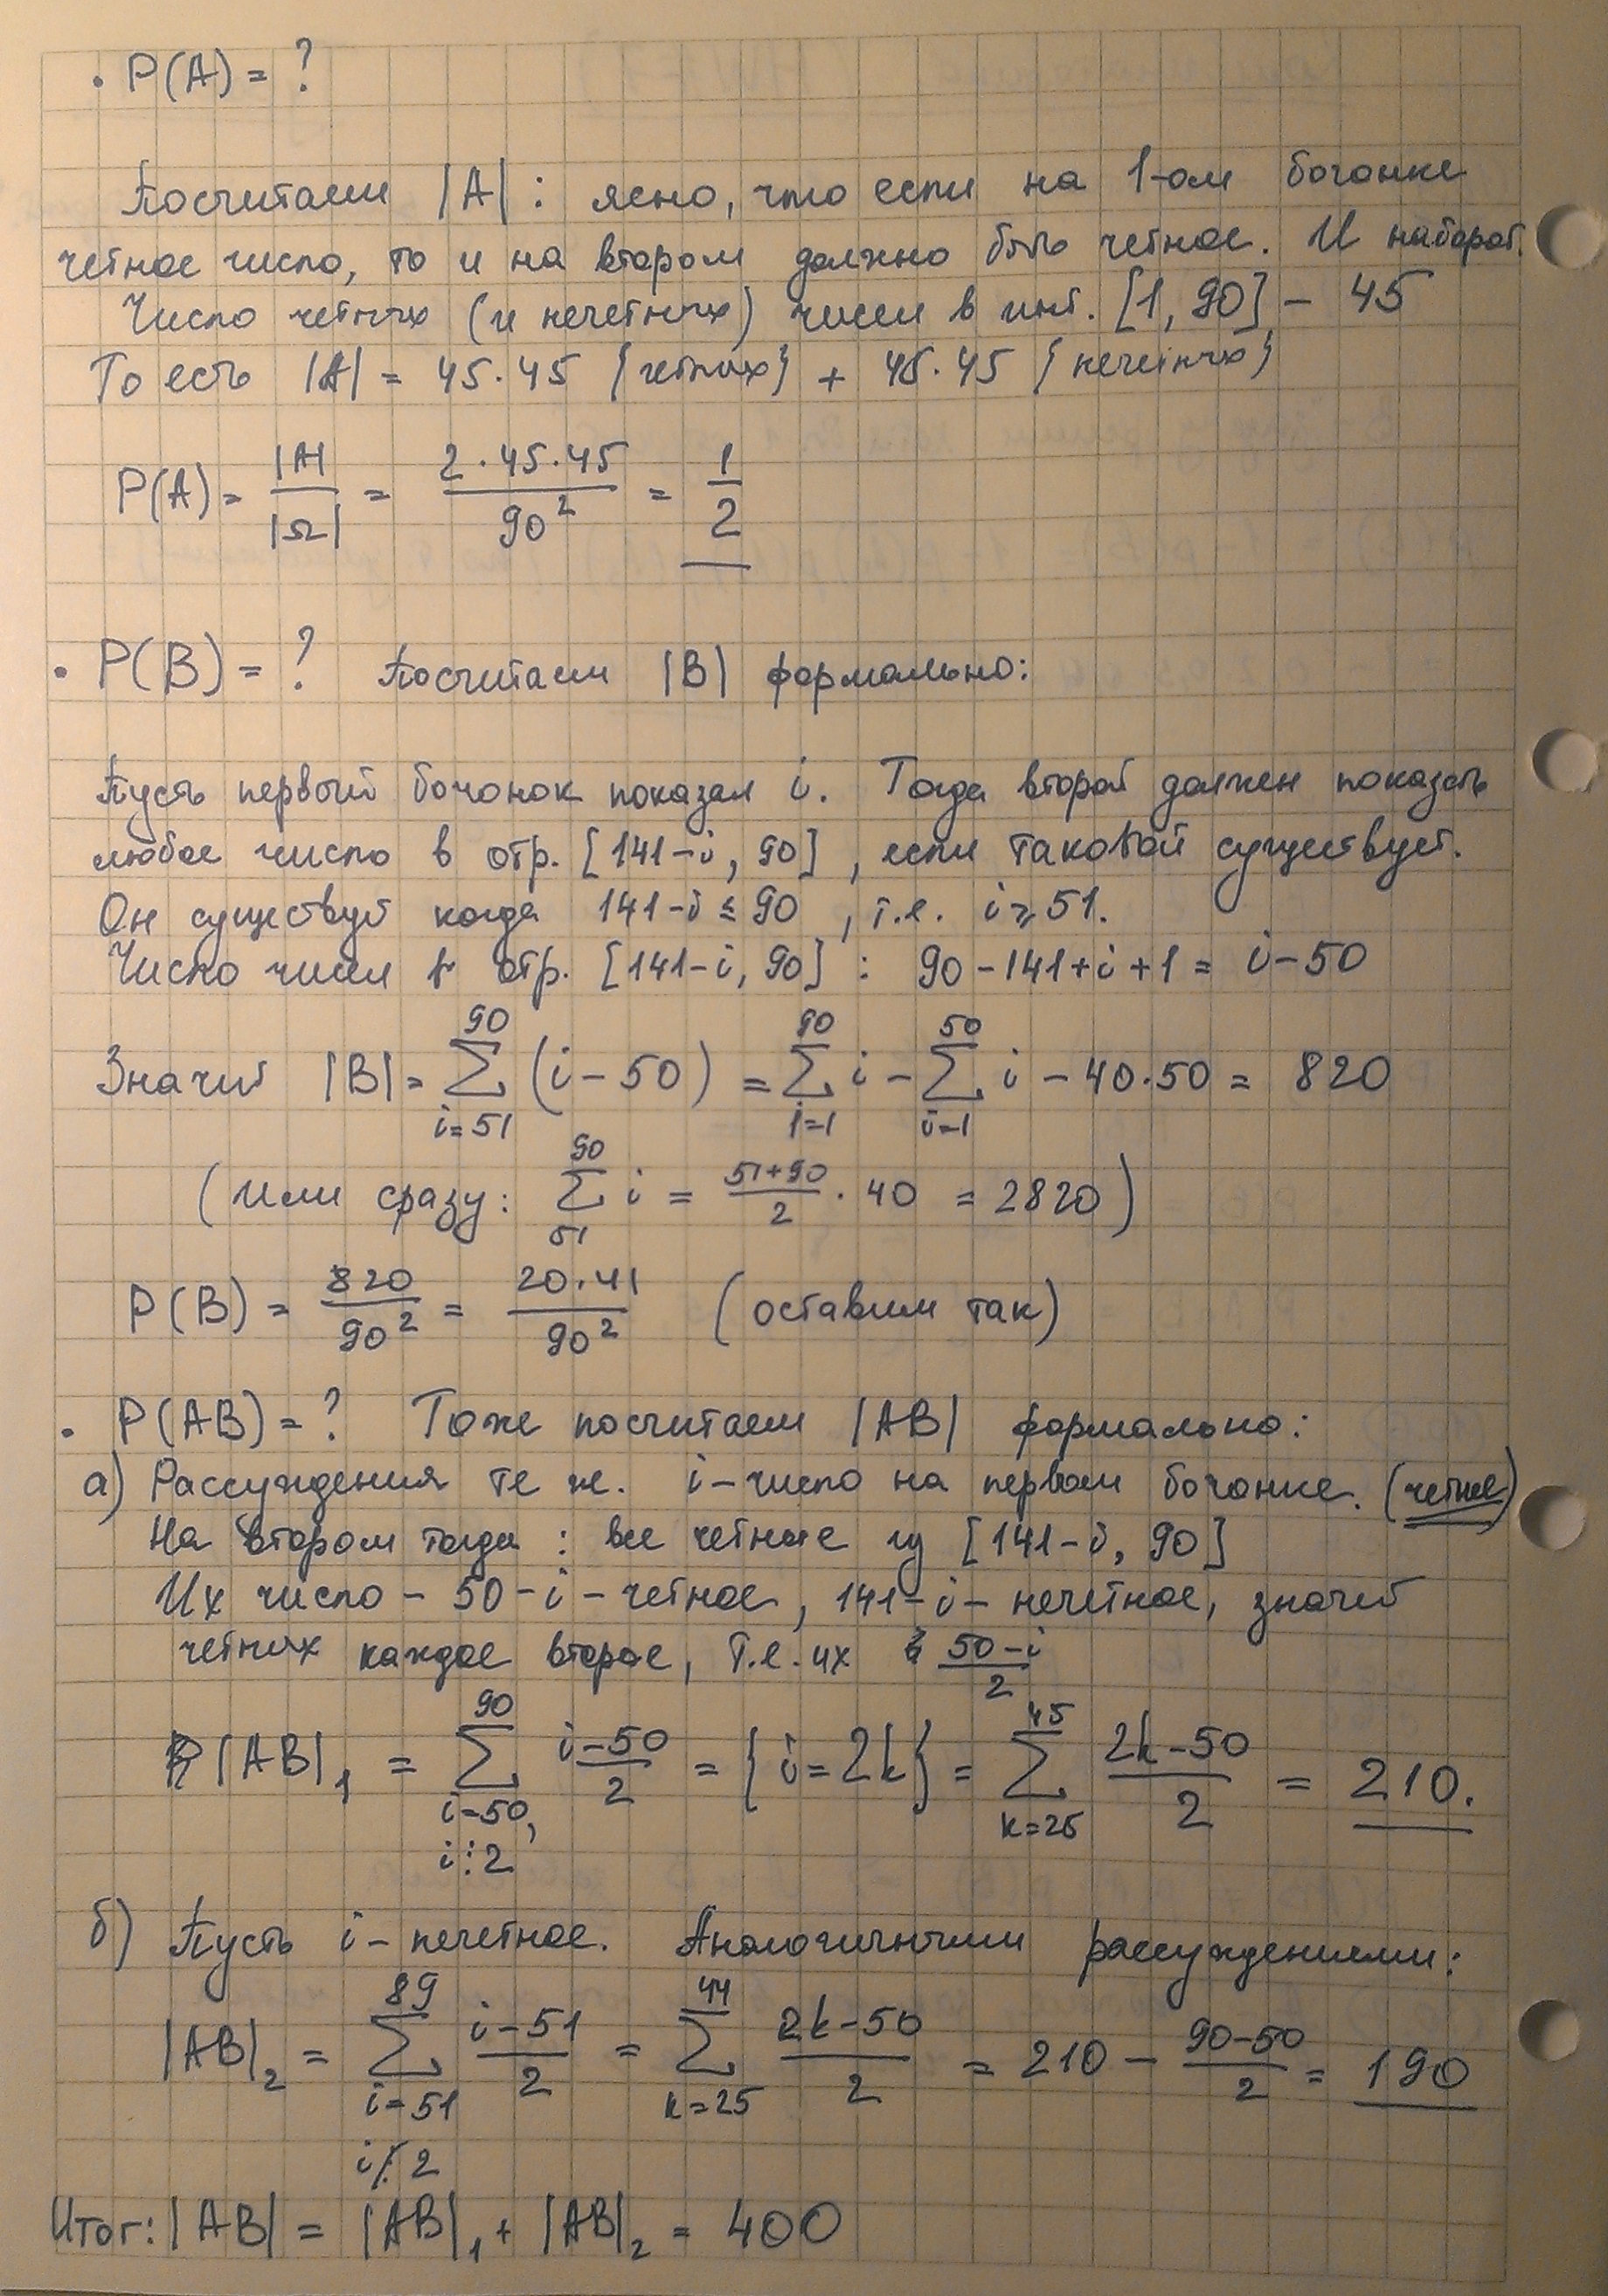 • P(A) = ?
Посчитаем |A| : ясно, что если на 1-ом бочонке
четное число, то и на втором должно быть четное. И наборот.
Число четных (и нечетных) чисел в инт. [1, 90] - 45
То есть |A| = 45·45 {четных} + 45·45 {нечетных}
P(A) = |A| / |Ω| = 2·45·45 / 90² = 1/2
• P(B) = ? Посчитаем |B| формально:
Пусть первый бочонок показал i. Тогда второй должен показать
любое число в отр. [141-i, 90], если таковой существует.
Он существует когда 141-i ≤ 90, т.е. i ≥ 51.
Число чисел в отр. [141-i, 90] : 90-141+i+1 = i-50
Значит |B| = ∑_{i=51}^{90} (i-50) = ∑_{i=1}^{90} i - ∑_{i=1}^{50} i - 40·50 = 820
(Или сразу: ∑_{51}^{90} i = (51+90)/2 · 40 = 2820)
P(B) = 820/90² = 20·41/90² (оставим так)
• P(AB) = ? Тоже посчитаем |AB| формально:
а) Рассуждения те же. i - число на первом бочонке. (четное)
На втором тогда : все четные из [141-i, 90]
Их число - 50-i - четное, 141-i - нечетное, значит
четных каждое второе, т.е. их (50-i)/2
|AB|₁ = ∑_{i=50, i⋮2}^{90} (i-50)/2 = {i=2k} = ∑_{k=25}^{45} (2k-50)/2 = 210.
б) Пусть i - нечетное. Аналогичными рассуждениями:
|AB|₂ = ∑_{i=51, i⋮̸2}^{89} (i-51)/2 = ∑_{k=25}^{44} (2k-50)/2 = 210 - (90-50)/2 = 190
Итог: |AB| = |AB|₁ + |AB|₂ = 400